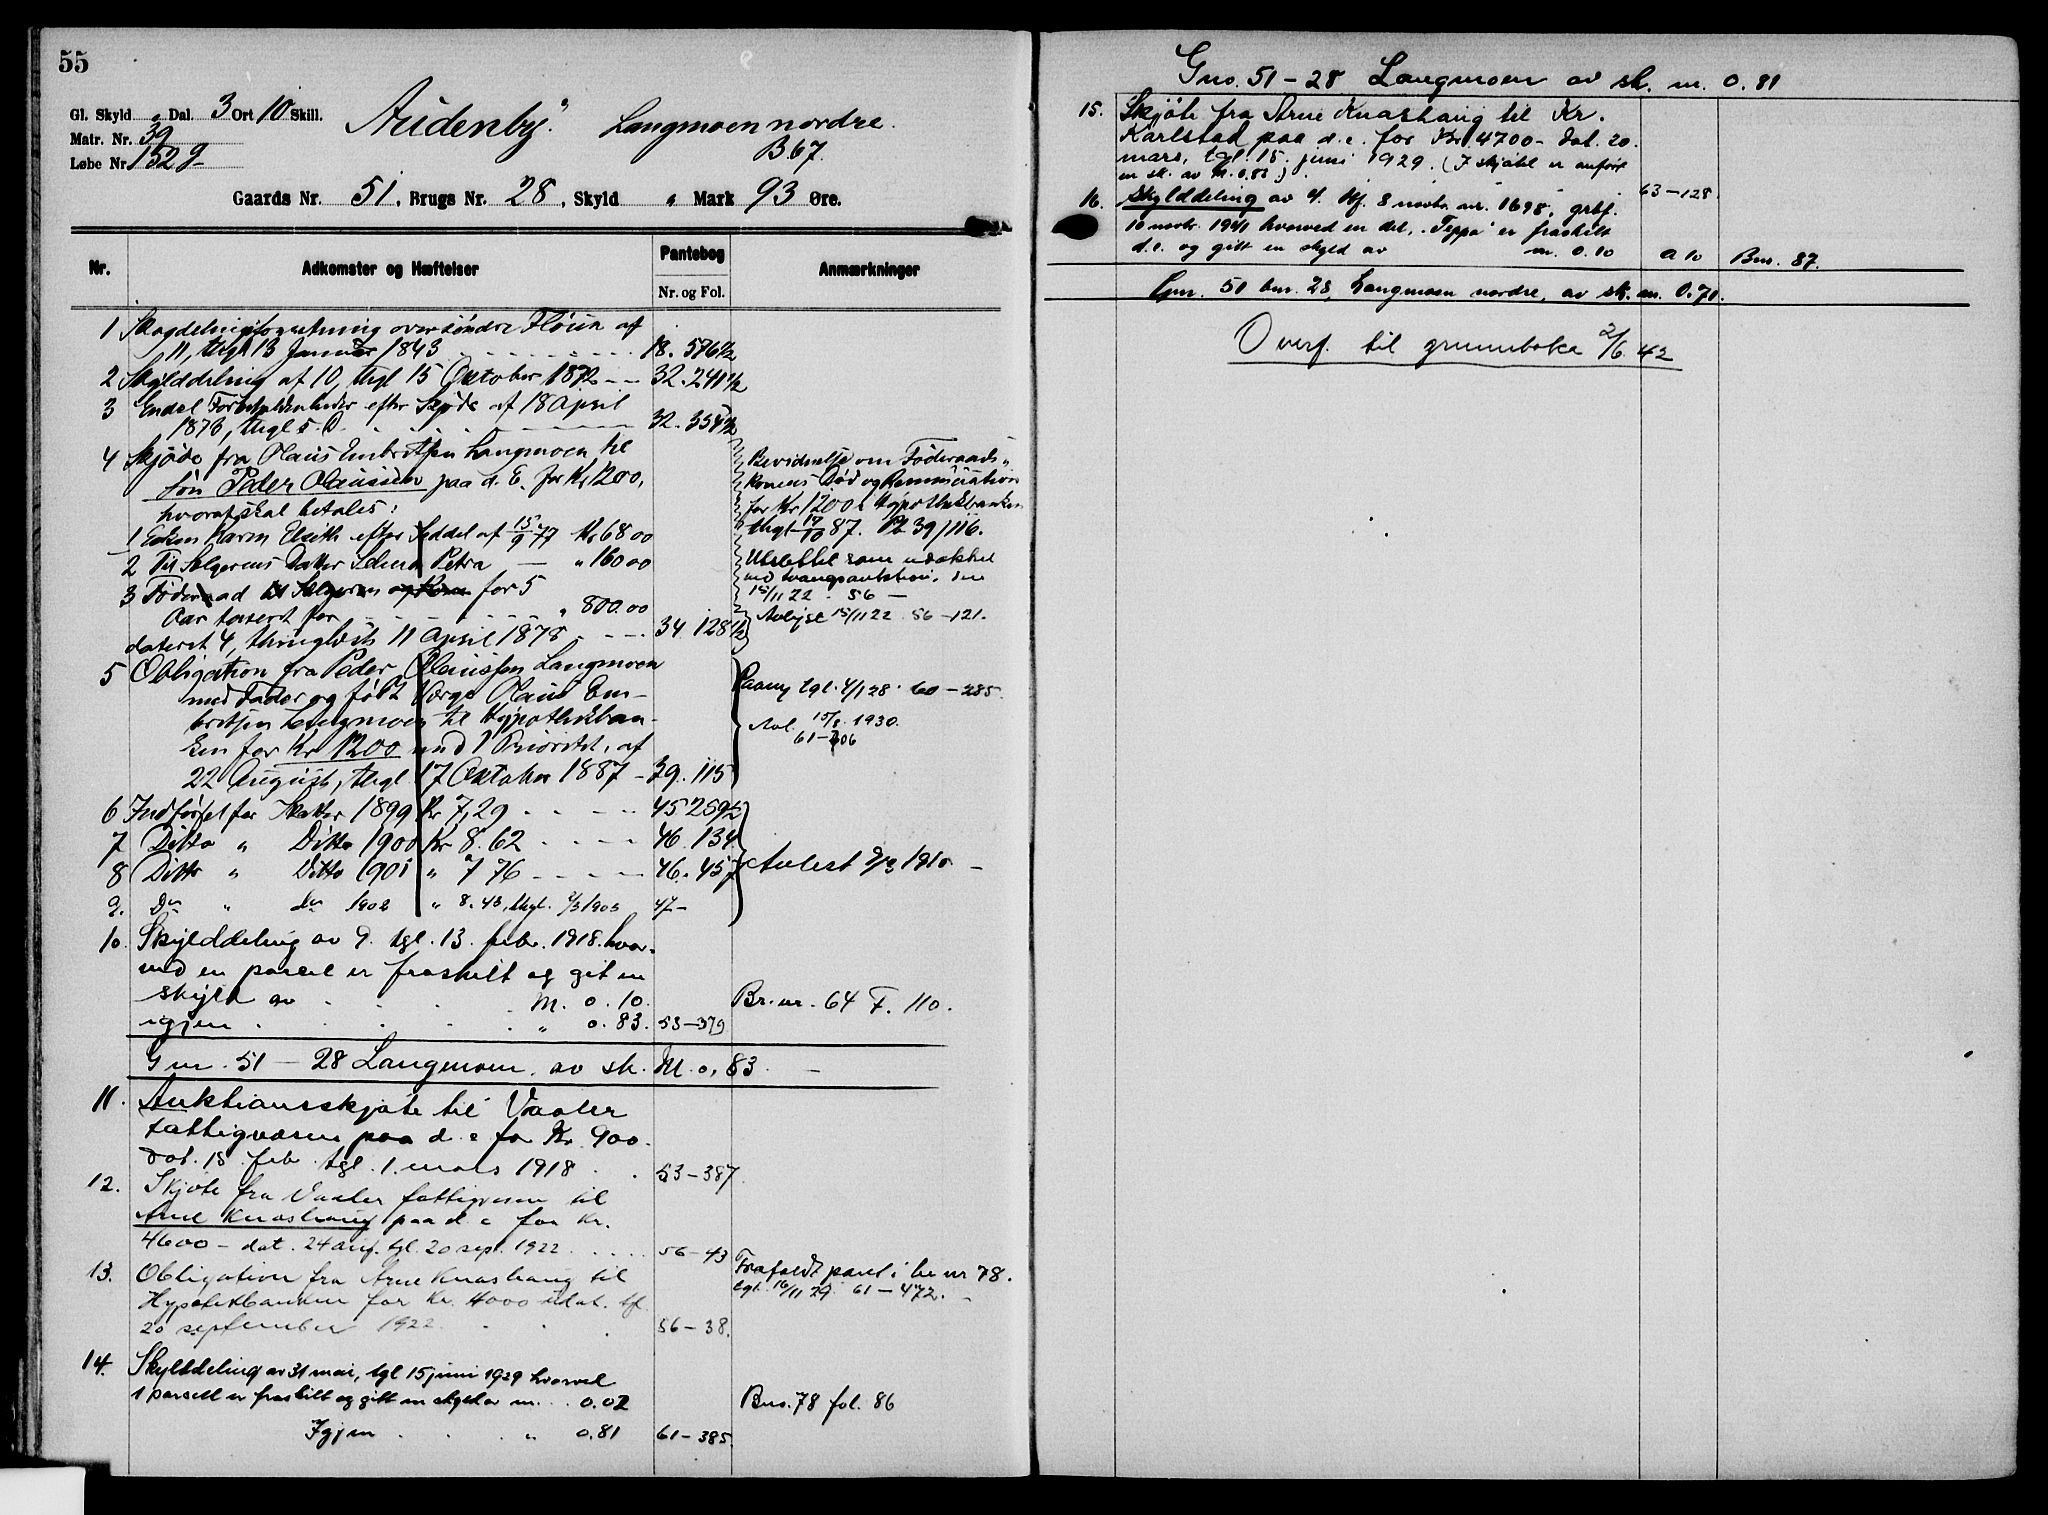 55
Gl. Skyld " Dal. 3 Ort 10 Skill.
Matr. Nr. 39
Løbe Nr. 152 g
Audenby. Langmoen nordre.
B 67.
Gaards Nr. 51, Brugs Nr. 28, Skyld " Mark 93 Øre.
Nr. Adkomster og Hæftelser Pantebog Anmærkninger
Nr. og Fol.
1 over søndre Fløien af
11, thgl 13 Januar 1843 18. 576½
2 Skylddeling af 10, thgl 15 Oktober 1872 32. 241½
3 Endel efter Skjøde af 18 April
1876, thgl s. D. 32. 354½
4 Skjøde fra Olaus Embretsen Langmoen til
søn Peder Olaussen paa d. E. for Kr 1200,
hvoraf skal betales:
1 Enken Karen Elseth efter Seddel af 15/9 77 Kr 68 00
2 Til Sælgerens Datter Petra — " 160 00
3 Føderaad til Sælgeren og Kone for 5
Aar taxert for " 800.00
dateret 4, thinglæst 11 April 1878 34 128½
Bevidnelse om Føderaads-
konens Død og
for Kr 1200 t. Hypothekbanken
thgl 17/10 87. Pb 39/116.
Utslettet som udækket
ved tvangsauktion, den
15/11 22 56 —
Avlyst 15/11 22 56 — 121.
5 Obligation fra Peder Olaussen Langmoen
med Fader og født Værge Olaus Em-
bretsen Langmoen til Hypothekban-
ken for Kr 1200 med 1 Prioritet, af
22 August, thgl 17 Oktober 1887 — 39. 115
tgl. 4/1 28. 60 — 285.
Avl. 15/8. 1930.
61 — 706
6 Indførsel for Skatter 1899 Kr 7,29 45 259½
7 Ditto " Ditto 1900 Kr 8.62 46. 134
8 Ditto " Ditto 1901 " 7 76 46. 457
9. Do " do 1902 " 8.43, thgl. 9/3 1903 47 —
Avlest 9/3 1910 —
10. Skylddeling av 9. tgl. 13. febr. 1918. hvor-
ved en parcel er fraskilt og git en
skyld av M. 0.10. Br. nr. 64 F. 110.
igjen " 0.83. 53 — 379
Gnr. 51 — 28 Langmoen. av sk. M. 0,83. —
11. Auktionsskjøte til Vaaler
fattigvæsen paa d. e for Kr. 900.
dat. 15. feb. tgl. 1. mars 1918 53 — 387.
12. Skjøte fra Vaaler fattigvesen til
Arne Knashaug paa d. e for Kr.
4600 — dat. 24 aug. tgl. 20 sept. 1922 56 — 43
13. Obligation fra Arne Knashaug til
Hypotekbanken for Kr. 4000 tgl.
20 september 1922 56 — 38.
Frafaldt pant i br nr 78.
tgl. 16/11 29. 61 — 472. —
14. Skylddeling av 31 mai, tgl 15 juni 1929 hvorved
1 parsell er fraskilt og gitt en skyld av m. 0.02 Bno. 78 fol. 86
Igjen " 0.81 61 — 385.
Gno. 51 — 28 Langmoen av sk. m. 0.81
15. Skjøte fra Arne Knashaug til Kr.
Karlstad paa d. e. for Kr. 4700 — dat. 20.
mars, tgl. 15. juni 1929. (I skjøtet er anført
en sk. av M. 0.83.) 63 — 128.
16. Skylddeling av 8 novbr. nr. 1698, grbf.
10 novbr. 1941 hvorved en del, "Teppa" er fraskilt
d. e. og gitt en skyld av m. 0.10 a 10 Bnr. 87.
Gnr. 51 bnr. 28, Langmoen nordre, av sk. m. 0.71.
Overf. til grunnboka 2/6 42